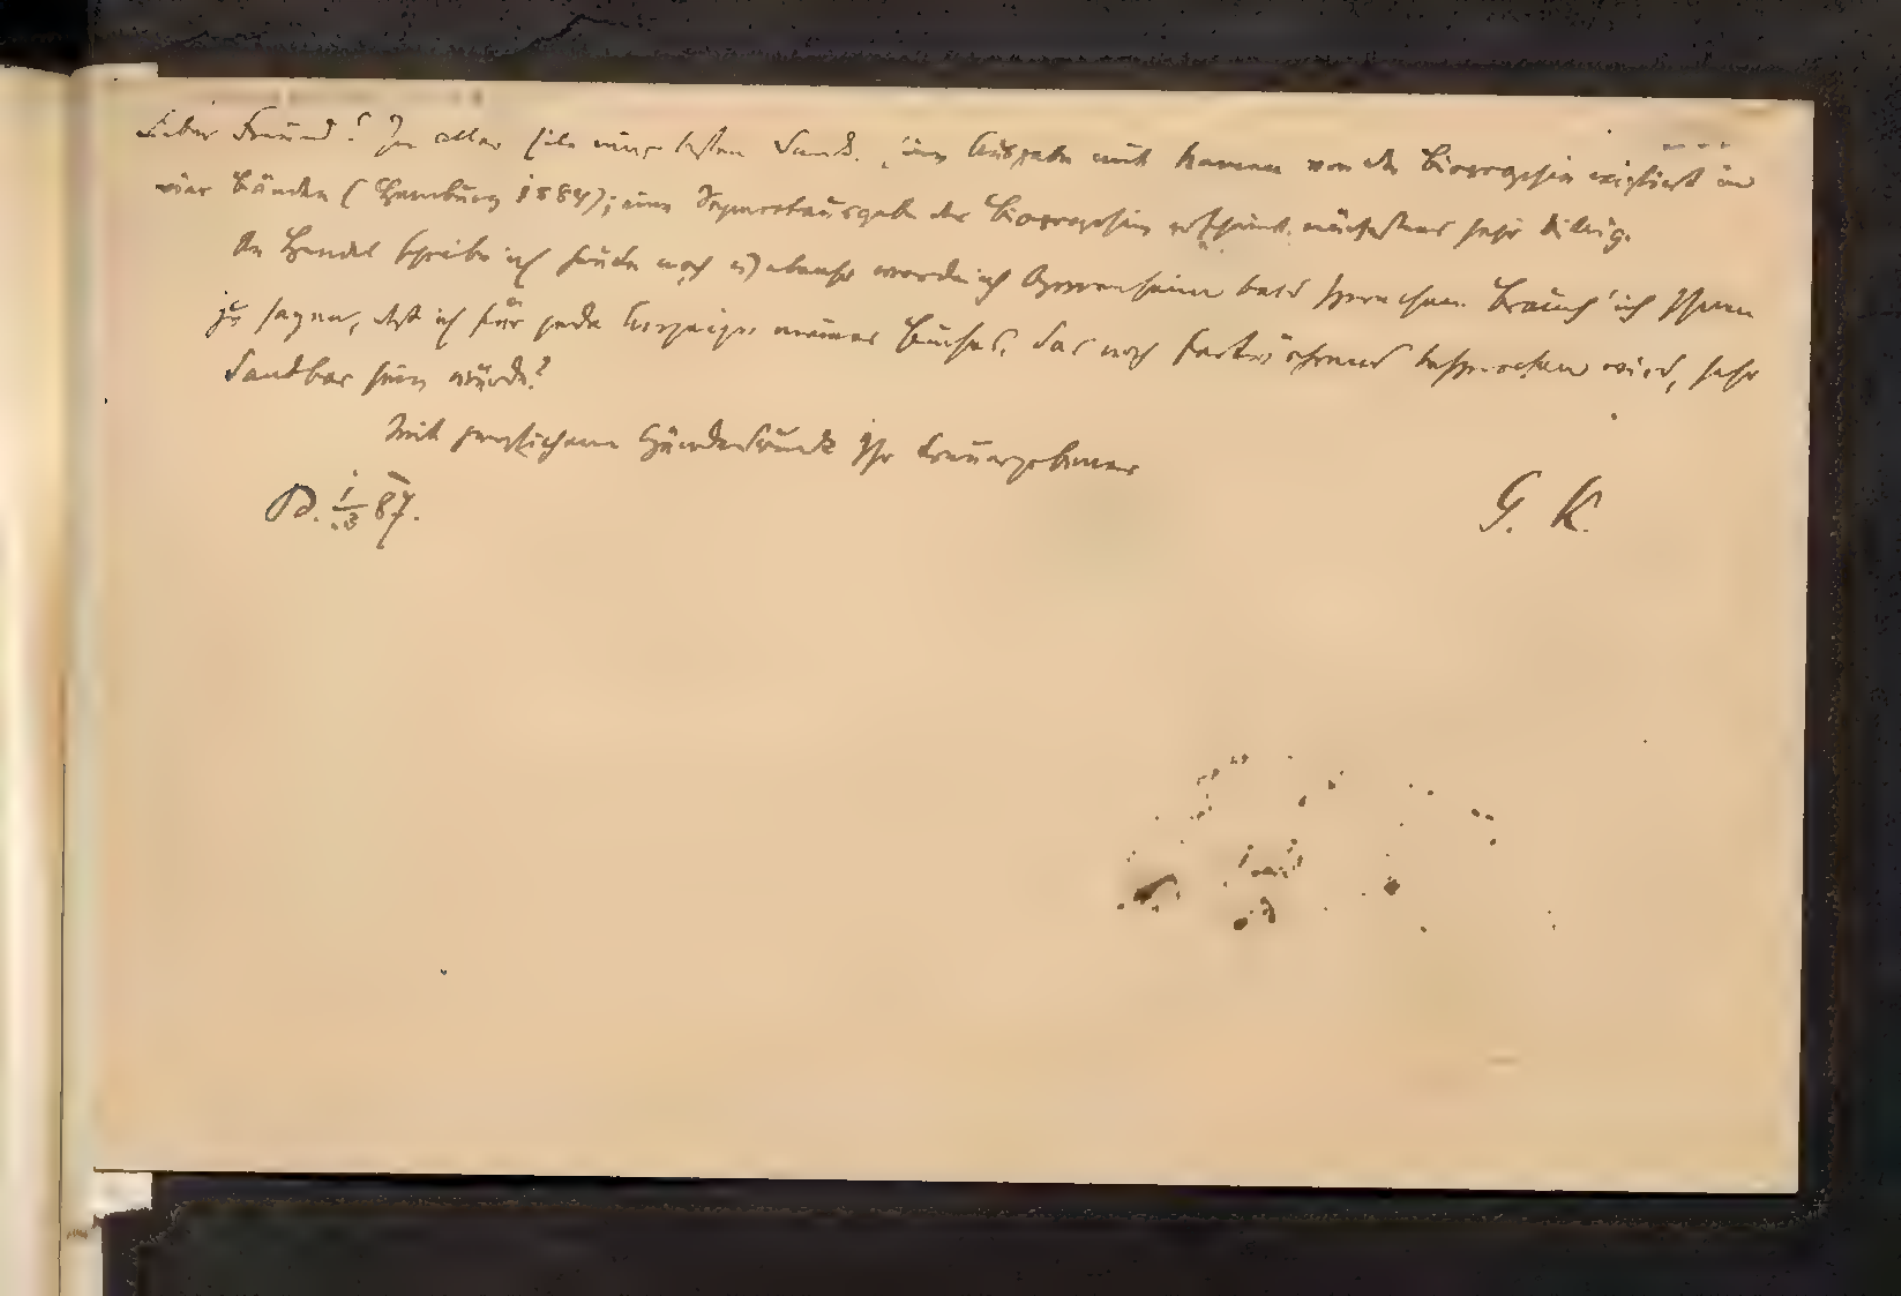 Lieber Freund! In aller Eile nur besten Dank. Eine Ausgabe mit Karten von der Biographie existiert in
vier Bänden (Hamburg 1884); eine Separatausgabe der Biographie erscheint nächstens sehr billig.
An Hendel schreibe ich heute noch u) ebenso werde ich Oppenheim bald sprechen. Brauch' ich Ihnen
zu sagen, daß ich für jede Anzeige meines Buches, das noch fortwährend besprochen wird, sehr
dankbar sein würde?
Mit herzlichem Händedruck Ihr treuergebener
D. 1/3 87.
G. K.